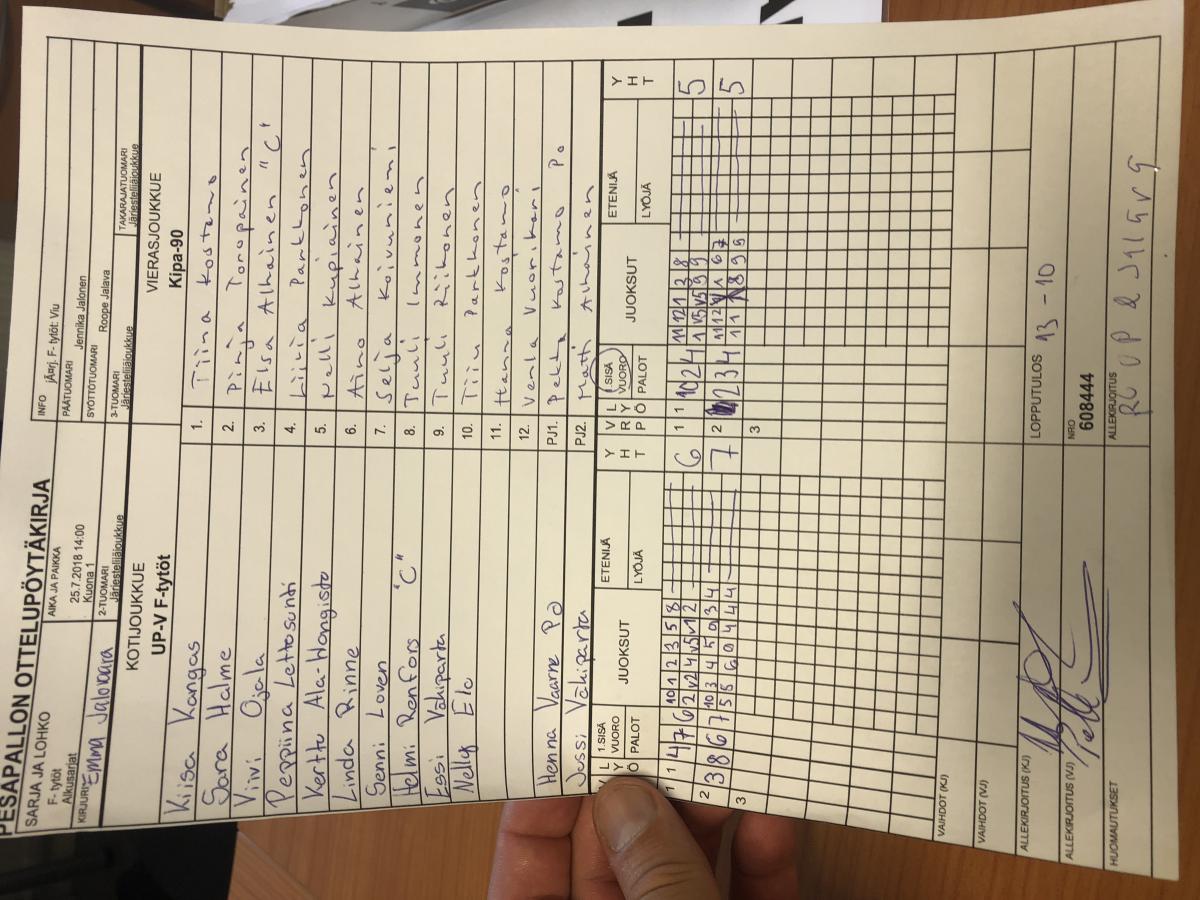 PESÄPALLON OTTELUPÖYTÄKIRJA
SARJA JA LOHKO
F- tytöt
Alkusarjat
AIKA JA PAIKKA
25.7.2018 14:00
Kuona 1
INFO jÃ¤rj. F- tytöt: Viu
PÄÄTUOMARI Jennika Jalonen
SYÖTTÖTUOMARI Roope Jalava
KIRJURI Emma Jalonaara
2-TUOMARI
Järjestelijäjoukkue
3-TUOMARI
Järjestelijäjoukkue
TAKARAJATUOMARI
Järjestelijäjoukkue
KOTIJOUKKUE
UP-V F-tytöt
VIERASJOUKKUE
Kipa-90
Kiisa Kangas 1. Tiina Kostamo
Sara Halme 2. Pinja Toropainen
Viivi Ojala 3. Elsa Alhainen "C"
Peppiina Lettosunti 4. Liivi Parkkonen
Kerttu Ala-Hongisto 5. Nelli Kupiainen
Linda Rinne 6. Aino Alhainen
Senni Loven 7. Selja Koivuniemi
Helmi Renfors "C" 8. Tuuli Immonen
Essi Vähiparta 9. Tuuli Riikonen
Nelly Elo 10. Tiiu Parkkonen
11. Hanna Kostamo
12. Venla Vuorikari
Henna Vaarne PO PJ1. Pekka Kostamo Po
Jussi Vähiparta PJ2. Mati Alhainen
1.SISÄ VUORO PALOT JUOKSUT ETENIJÄ LYÖJÄ YHT VRP LYÖ 1.SISÄ VUORO PALOT JUOKSUT ETENIJÄ LYÖJÄ YHT
1 4 7 6 10 1 2 3 5 8 6 1 10 2 4 11 12 1 3 8 5
2 v2 4 v5 v1 2 1 v5 v5 9 9
2 3 8 6 7 10 3 4 5 9 3 4 7 2 2 3 4 11 12 1 6 7 5
5 5 6 0 4 4 4 1 1 8 9 9
3 3
VAIHDOT (KJ)
VAIHDOT (VJ)
ALLEKIRJOITUS (KJ)
LOPPUTULOS 13 - 10
ALLEKIRJOITUS (VJ)
NRO
608444
HUOMAUTUKSET
ALLEKIRJOITUS